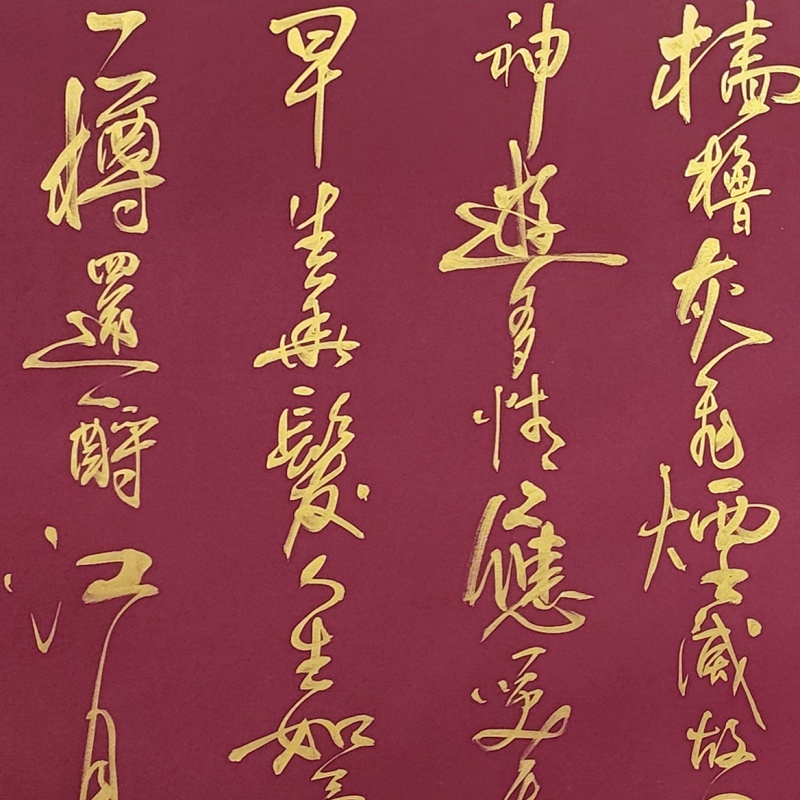 檣櫓灰飛煙滅故
神遊多情應笑
早生華髮人生如
一樽還酹江月